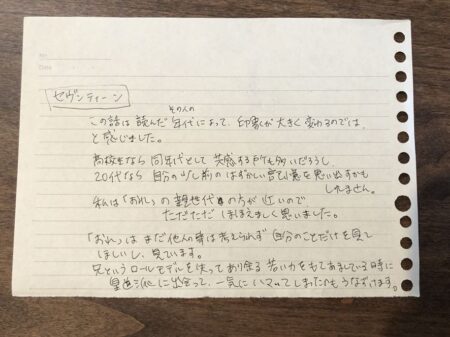 No.
Date
セヴンティーン
その人の
この話は読んだ年代によって、印象が大きく変わるのでは、
と感じました。
高校生なら同年代として共感する所も多いだろうし、
20代なら自分の少し前のはずかしい記憶を思い出すかも
しれません。
私は「おれ」の親世代の方が近いので、
ただただほほえましく思いました。
「おれ」はまだ他人の事は考えられず自分のことだけを見て
ほしいし、見ています。
兄というロールモデルを失ってあり余る若い力をもてあましている時に
皇道派に出会って、一気にハマってしまったのもうなずけます。